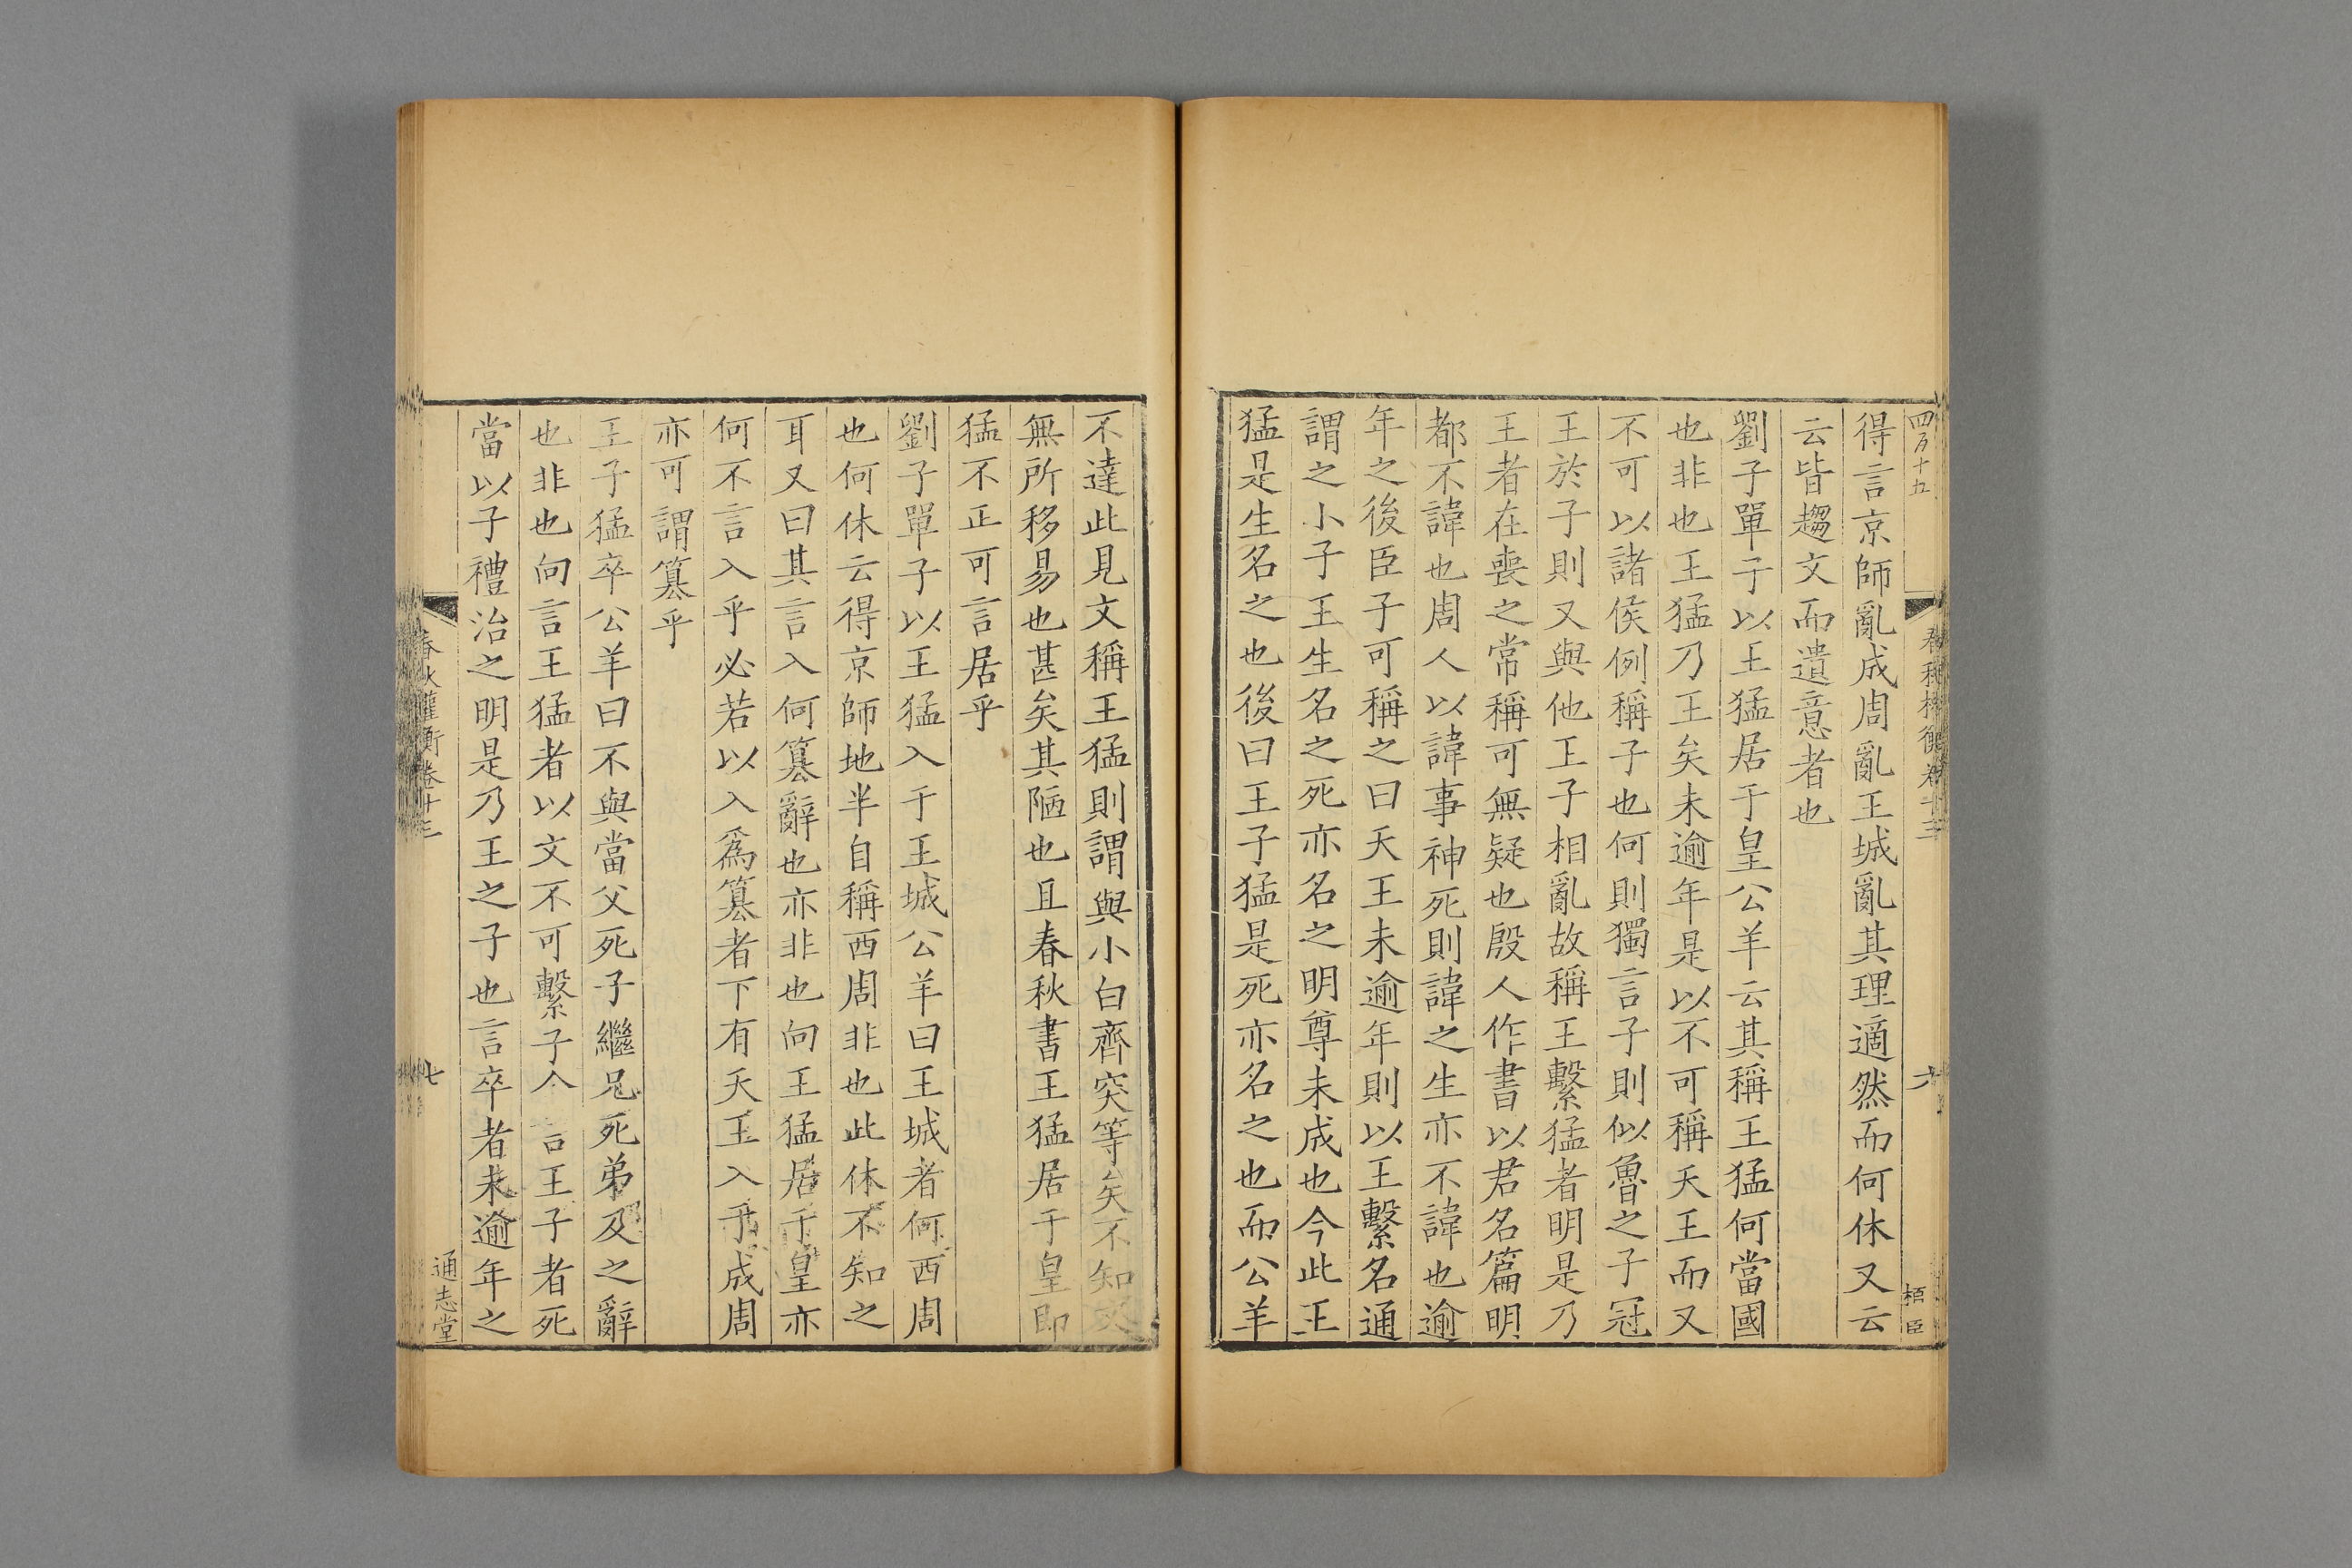 四百十五
春秋權衡卷十三
六
栢臣
得言京師亂成周亂王城亂其理適然而何休又云
云皆趨文而遺意者也
劉子單子以王猛居于皇公羊云其稱王猛何當國
也非也王猛乃王矣未逾年是以不可稱天王而又
不可以諸侯例稱子也何則獨言子則似魯之子冠
王於子則又與他王子相亂故稱王繫猛者明是乃
王者在喪之常稱可無疑也殷人作書以君名篇明
都不諱也周人以諱事神死則諱之生亦不諱也逾
年之後臣子可稱之曰天王未逾年則以王繫名通
謂之小子王生名之死亦名之明尊未成也今此王
猛是生名之也後曰王子猛是死亦名之也而公羊
不達此見文稱王猛則謂與小白齊突等矣不知突
無所移易也甚矣其陋也且春秋書王猛居于皇即
猛不正可言居乎
劉子單子以王猛入于王城公羊曰王城者何西周
也何休云得京師地半自稱西周非也此休不知之
耳又曰其言入何篡辭也亦非也向王猛居于皇亦
何不言入乎必若以入為篡者下有天王入于成周
亦可謂篡乎
王子猛卒公羊曰不與當父死子繼兄死弟及之辭
也非也向言王猛者以文不可繫子今言王子者死
當以子禮治之明是乃王之子也言卒者未逾年之
春秋權衡卷十三
七
通志堂